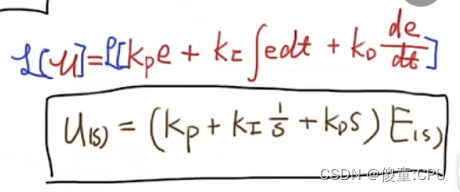 ℒ[u]=ℒ[kpe + kI∫edt + kD de/dt]
U(s) = (kp + kI 1/s + kDs) E(s)
CSDN @傻童:CPU